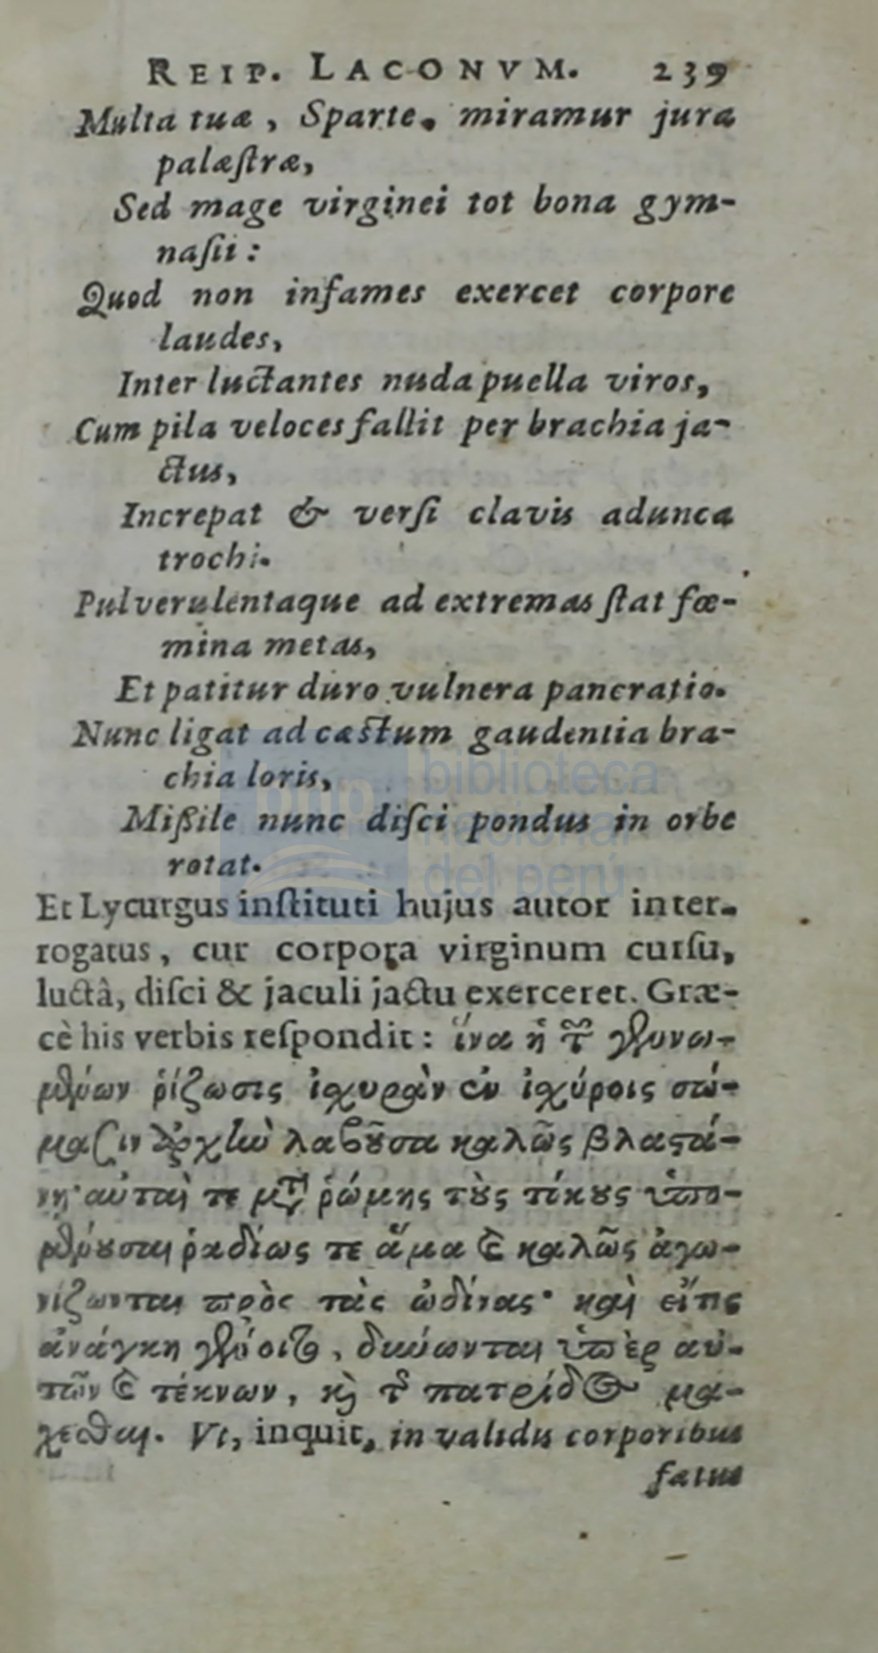 REIP. LACONVM. 239
Multa tuæ, Sparte, miramur jura
palæſtræ,
Sed mage virginei tot bona gym-
naſii:
Quod non infames exercet corpore
laudes,
Inter luctantes nuda puella viros,
Cum pila veloces fallit per brachia ja-
ctus,
Increpat & verſi clavis adunca
trochi.
Pulverulentaque ad extremas ſtat fœ-
mina metas,
Et patitur duro vulnera pancratio.
Nunc ligat ad cæſtum gaudentia bra-
chia loris,
Miſsile nunc diſci pondus in orbe
rotat.
Et Lycurgus inſtituti hujus autor inter-
rogatus, cur corpora virginum curſu,
luctâ, diſci & jaculi jactu exerceret. Græ-
cè his verbis reſpondit: ἵνα ἡ τ̃ γεννω-
μένων ῥίζωσις ἰχυρὰν ἐν ἰχύροις σώ-
μασιν ἀρχὴν λαβοῦσα καλῶς βλαστά-
νῃ· αὐταὶ τε μετὰ ῥώμης τοὺς τόκους ὑπο-
μένουσαι ῥαδίως τε ἅμα καὶ καλῶς ἀγω-
νίζωνται πρὸς τὰς ὠδίνας· καὶ εἴτις
ἀνάγκη γένοιτο, δυνωνται ὑπὲρ αὐ-
τῶν καὶ τέκνων, καὶ τ̃ πατρίδος μά-
χεσθαι. Vt, inquit, in validis corporibus
ſatus
biblioteca
nacional
del perú
bnp